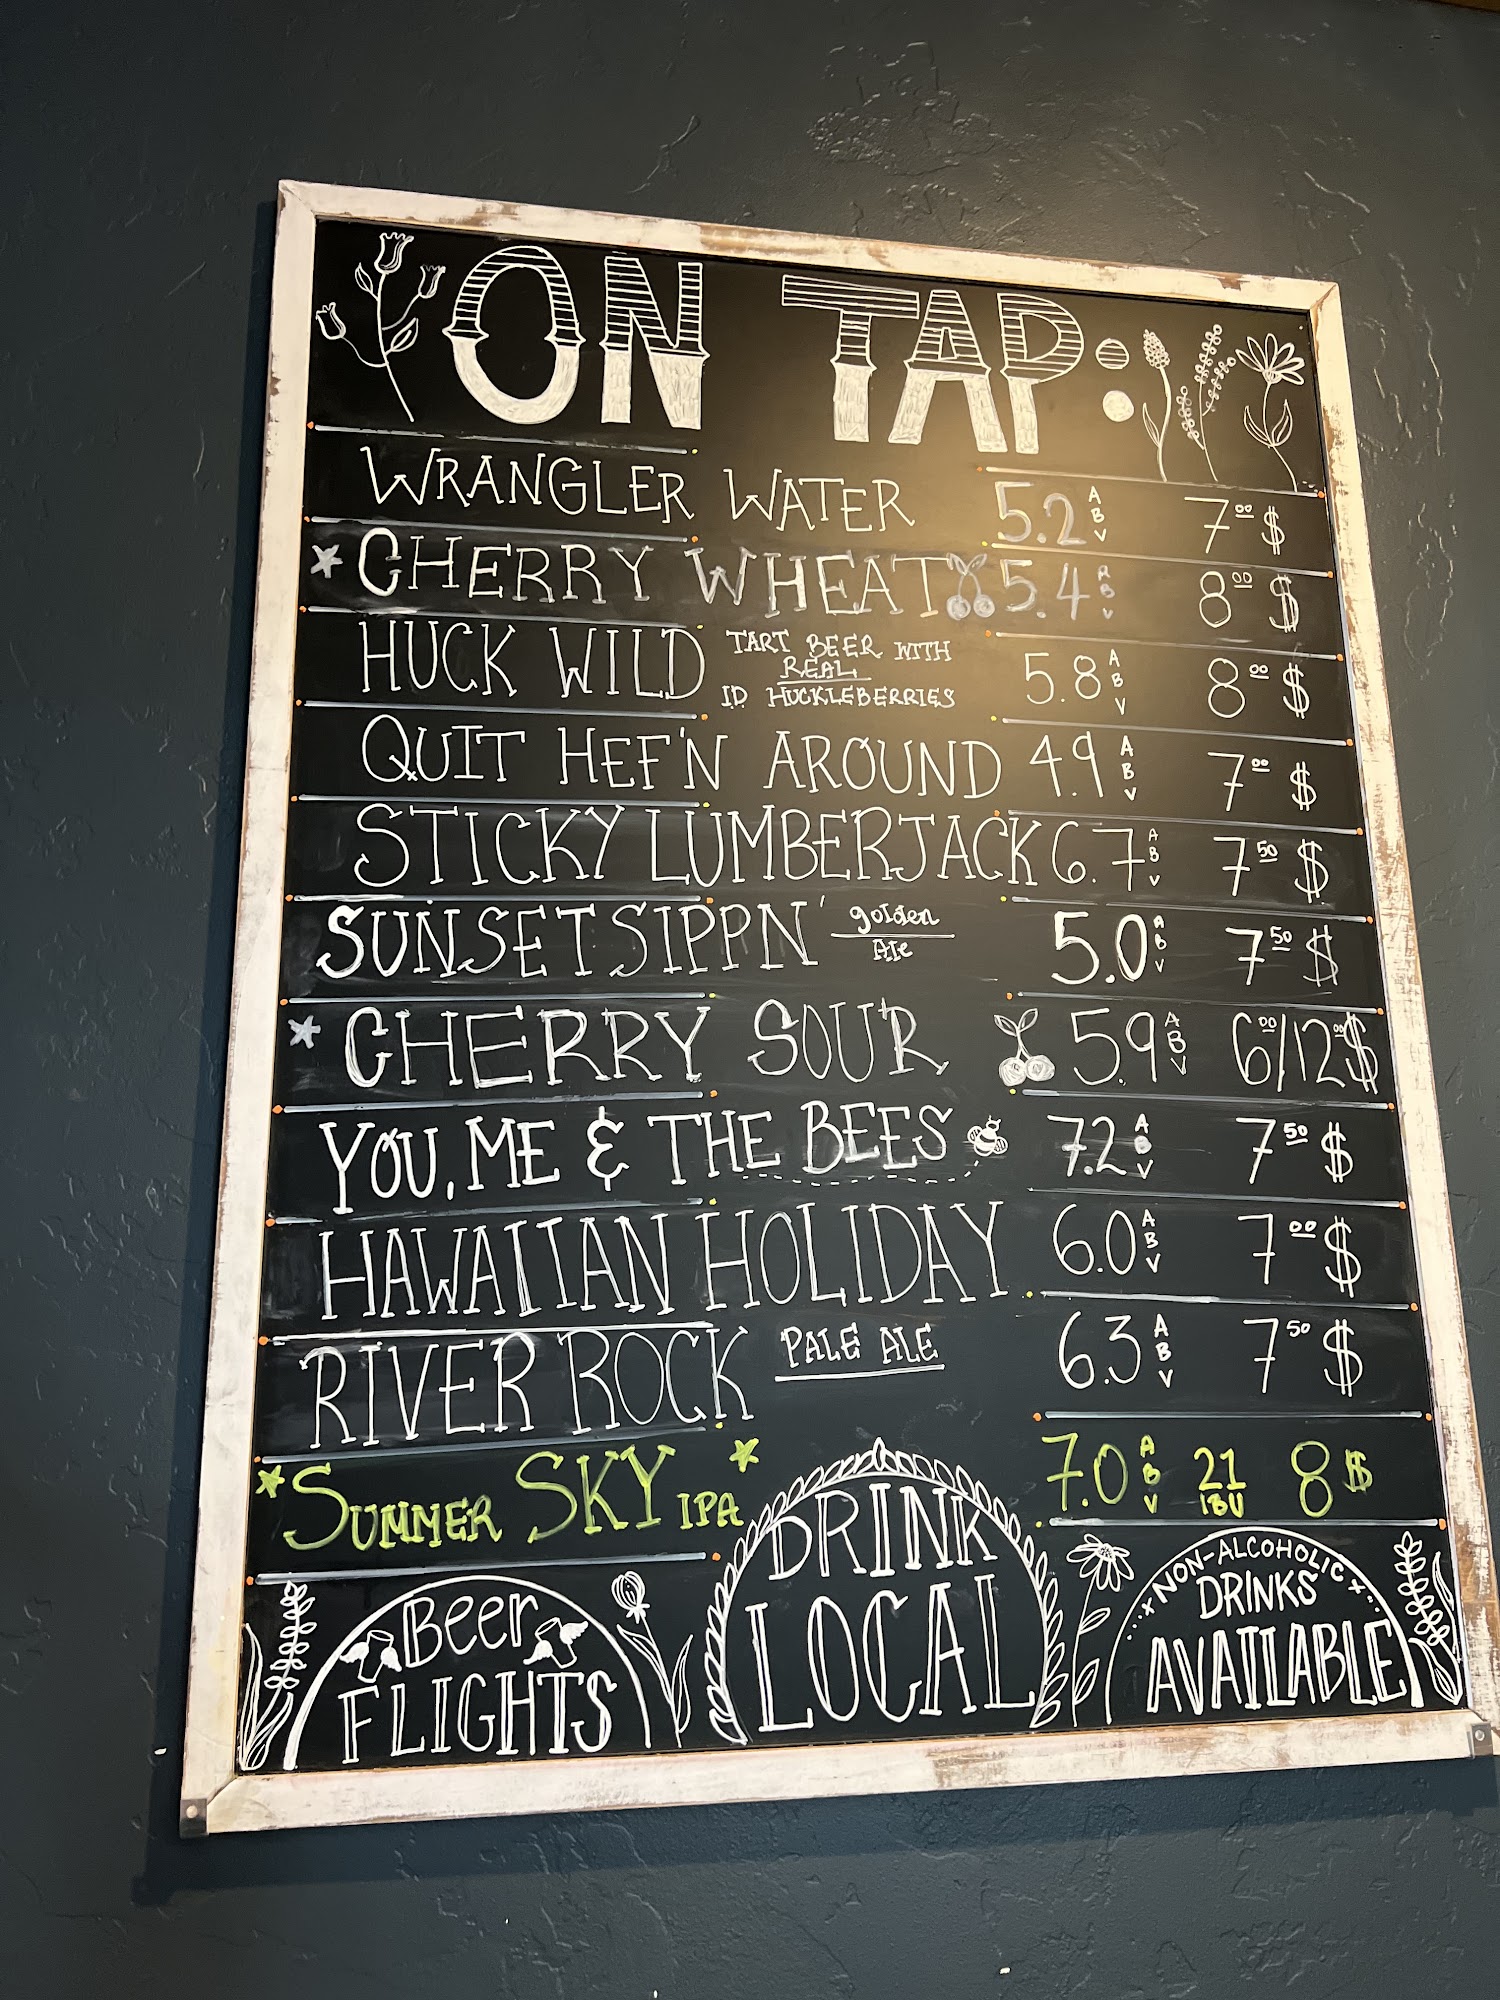 ON TAP:
WRANGLER WATER 5.2 ABV 7.00 $
CHERRY WHEAT 5.4 ABV 8.00 $
HUCK WILD TART BEER WITH REAL ID HUCKLEBERRIES 5.8 ABV 8.00 $
QUIT HEF'N AROUND 4.9 ABV 7.00 $
STICKY LUMBERJACK 6.7 ABV 7.50 $
SUNSET SIPPN' golden Ale 5.0 ABV 7.50 $
CHERRY SOUR 5.9 ABV 6.00/12.00 $
YOU, ME & THE BEES 7.2 ABV 7.50 $
HAWAIIAN HOLIDAY 6.0 ABV 7.00 $
RIVER ROCK PALE ALE 6.3 ABV 7.50 $
SUMMER SKY IPA 7.0 ABV 21 IBU 8 $
Beer FLIGHTS
DRINK LOCAL
NON-ALCOHOLIC DRINKS AVAILABLE